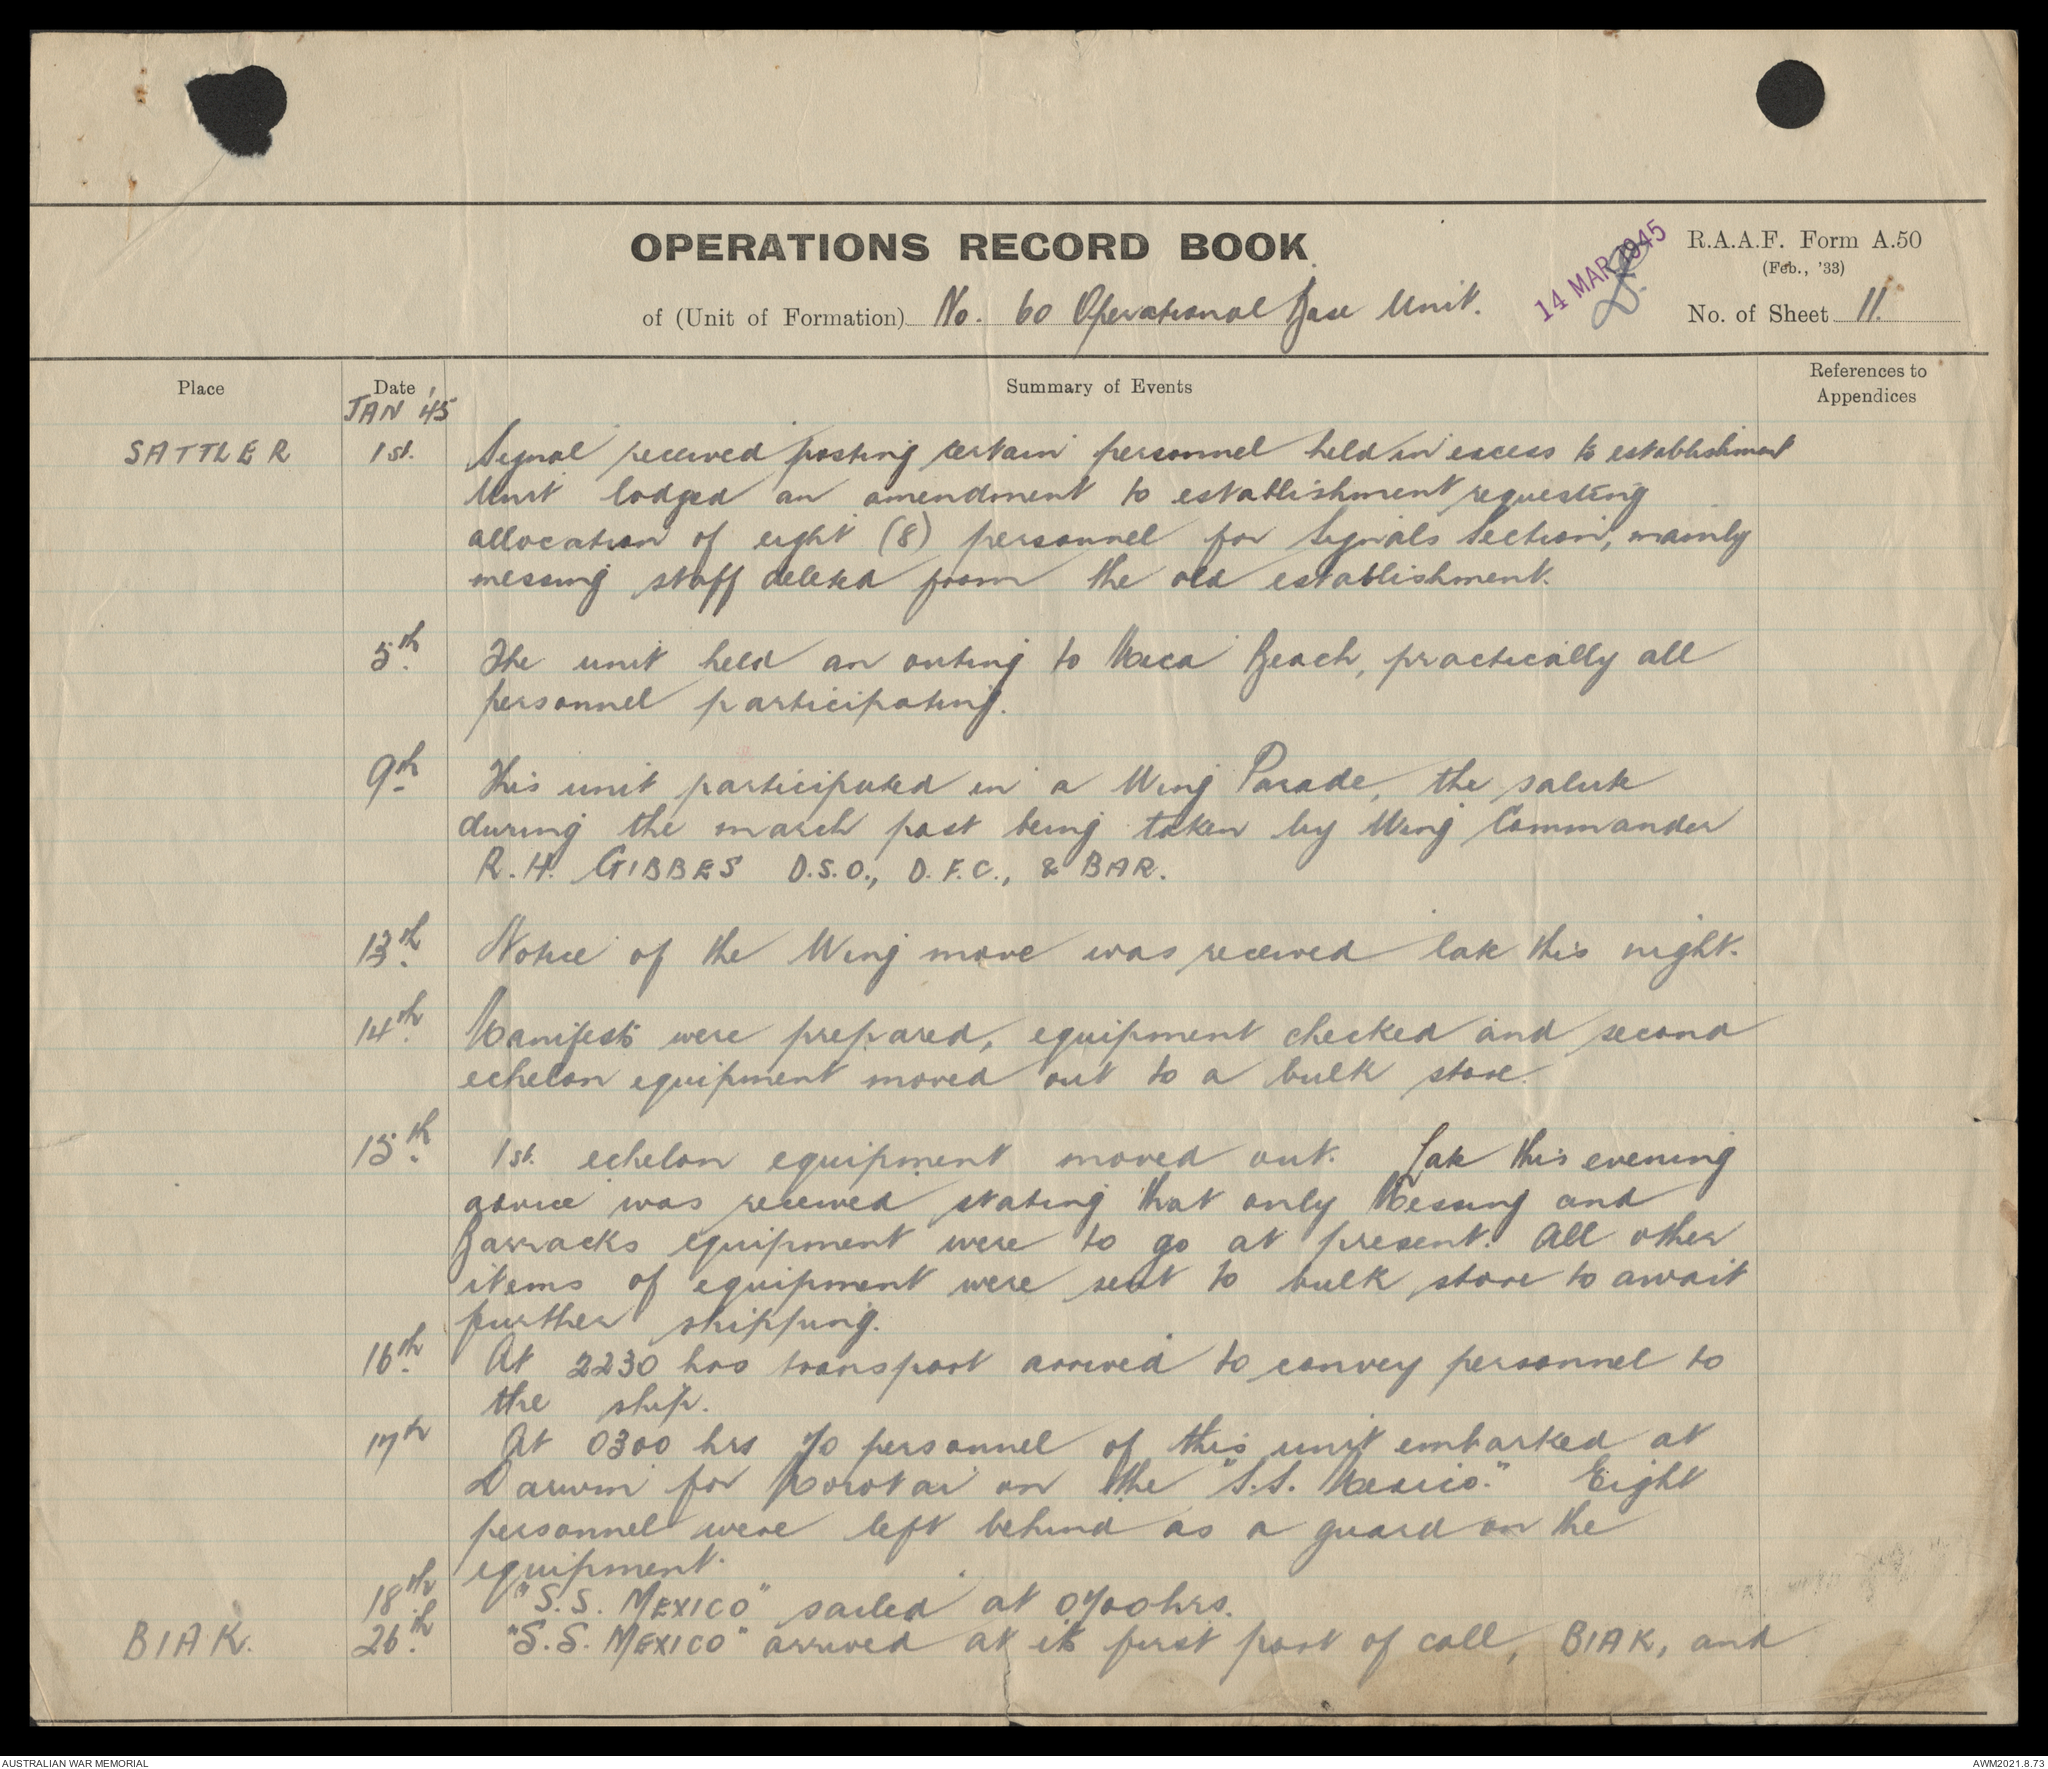 OPERATIONS RECORD BOOK
of (Unit of Formation) No. 60 Operational Base Unit.
14 MAR 1945
R.A.A.F. Form A.50
(Feb., '33)
No. of Sheet 11.
Place
Date
Summary of Events
References to
Appendices
JAN '45
SATTLER 1st. Signal received posting certain personnel held in excess to establishment
Unit lodged an amendment to establishment requesting
allocation of eight (8) personnel for Signals Section, mainly
messing staff deleted from the old establishment.
5th. The unit held an outing to Mica Beach, practically all
personnel participating.
9th This unit participated in a Wing Parade, the salute
during the march past being taken by Wing Commander
R.H. GIBBES D.S.O., D.F.C., & BAR.
13th. Notice of the Wing move was received late this night.
14th. Manifests were prepared, equipment checked and second
echelon equipment moved out to a bulk store.
15th. 1st. echelon equipment moved out. Late this evening
advice was received stating that only Messing and
Barracks equipment were to go at present. All other
items of equipment were sent to bulk store to await
further shipping.
16th. At 2230 hrs transport arrived to convey personnel to
the ship.
17th At 0300 hrs 70 personnel of this unit embarked at
Darwin for Morotai on the "S.S. Mexico." Eight
personnel were left behind as a guard on the
equipment.
18th "S.S. MEXICO" sailed at 0700hrs.
BIAK. 26th. "S.S. MEXICO" arrived at its first port of call, BIAK, and
AUSTRALIAN WAR MEMORIAL
AWM2021.8.73